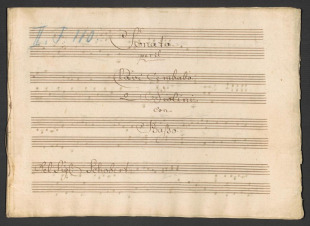 Sonata
per il
Clavi Cembalo
2 Violini
Con
Basso
Del Sigr Schobert